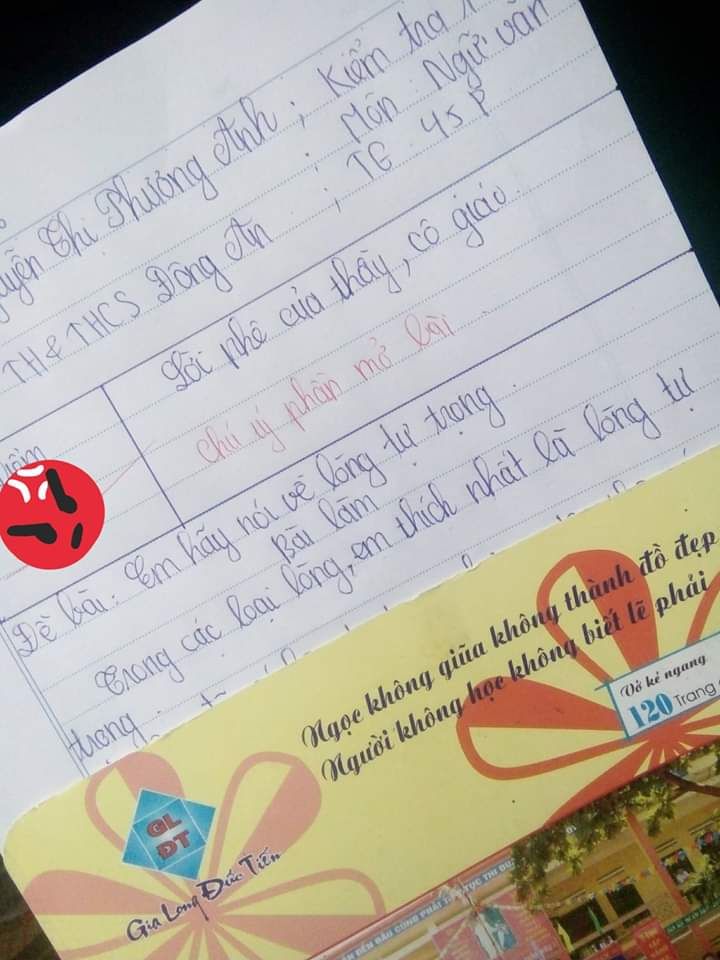 Thị Phương Anh ; Kiểm tra 1
; Môn : Ngữ văn
TH & THCS Đông An ; TG 45 P
Lời phê của thầy, cô giáo
chú ý phần mở bài
Đề bài : Em hãy nói về lòng tự trọng.
Bài làm
Trong các loại lòng, em thích nhất là lòng tự
trọng.
Ngọc không giũa không thành đồ đẹp
Người không học không biết lẽ phải
Vở kẻ ngang
120 Trang
GL
ĐT
Gia Long Đức Tiến